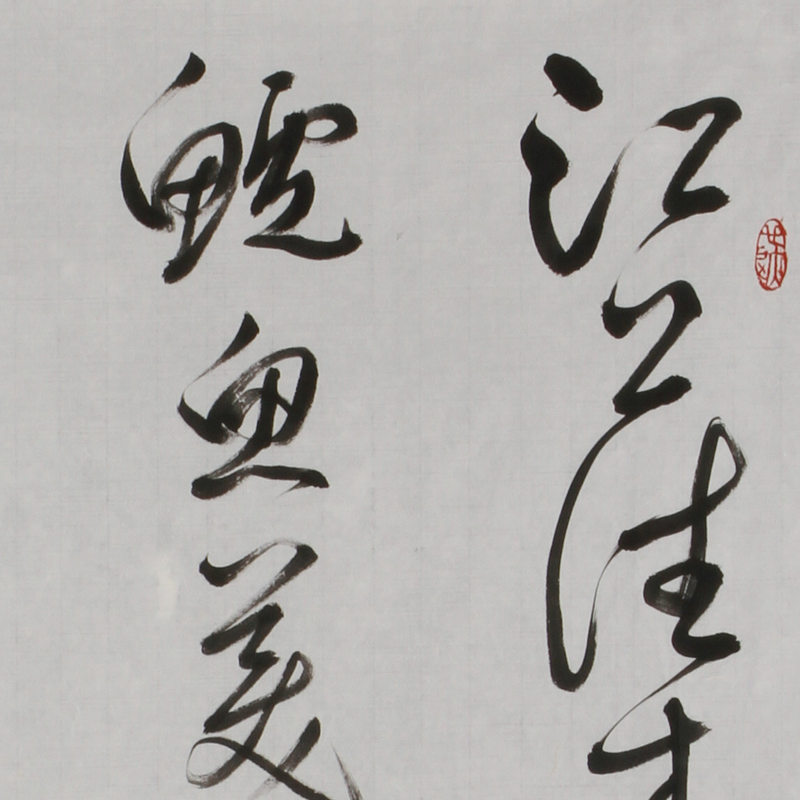 江上往来
鲈鱼美